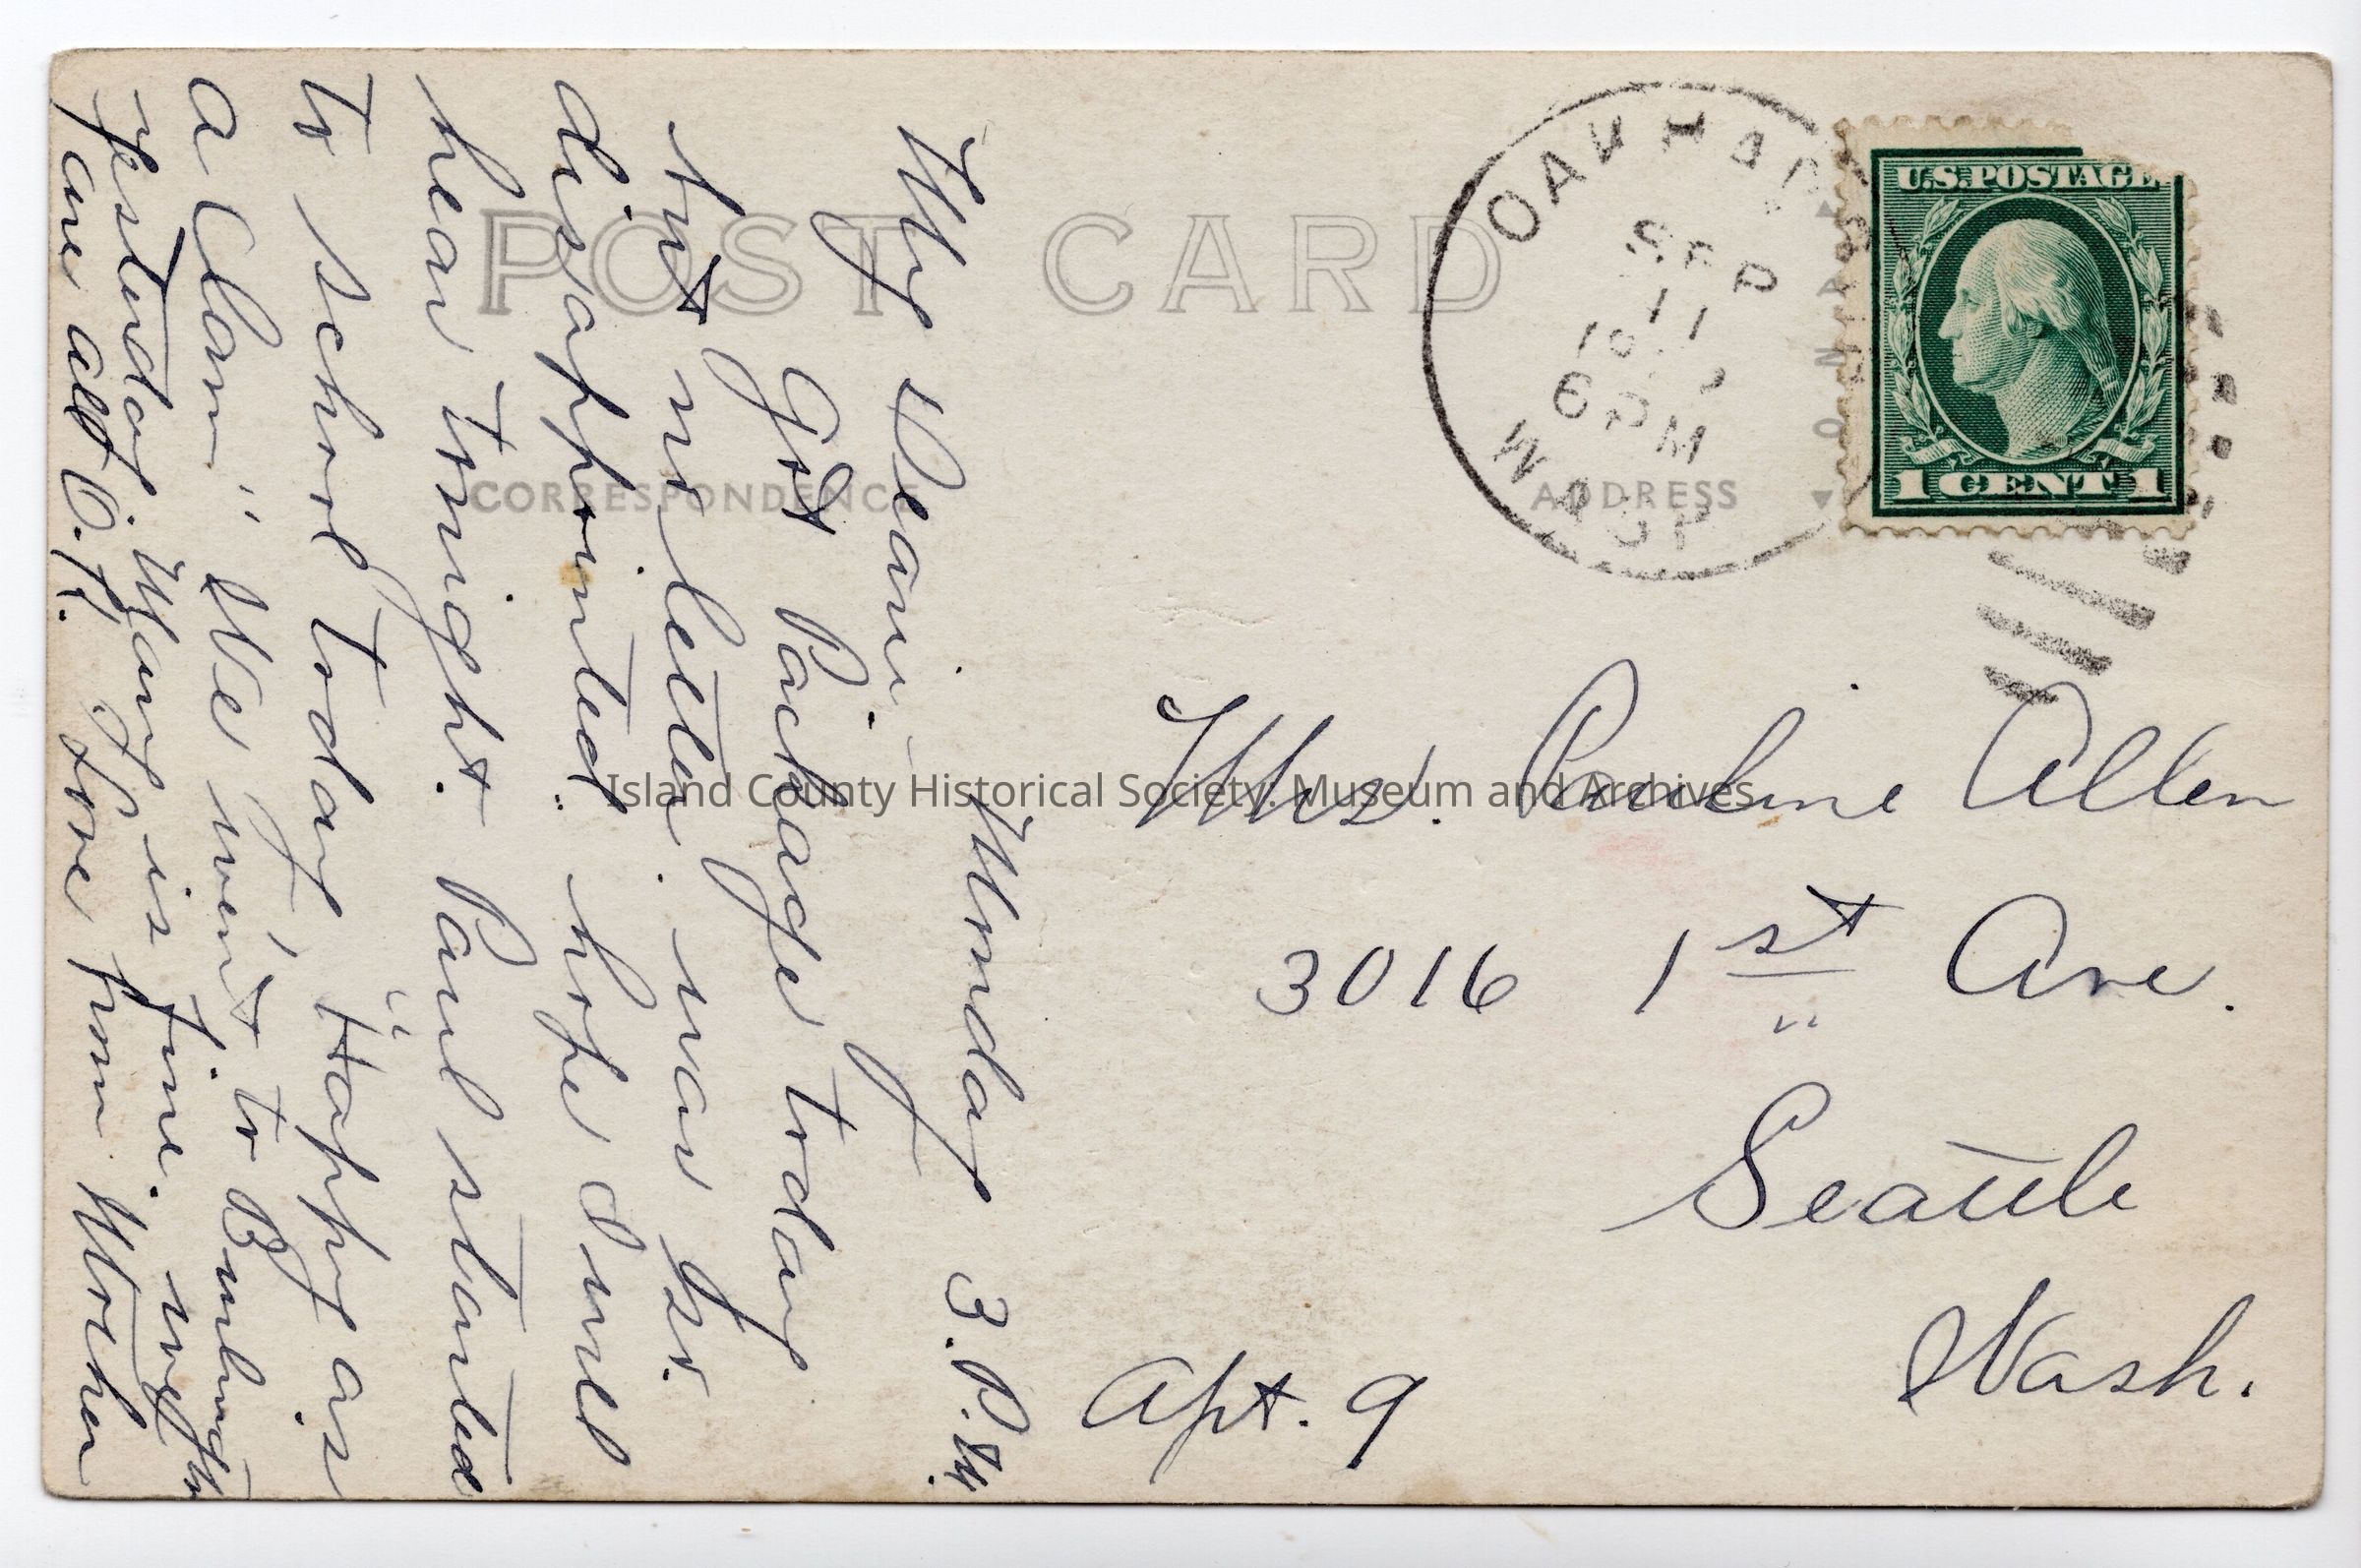 POST CARD
CORRESPONDENCE
ADDRESS
OAK HARBOR
SEP
11
6 PM
WASH
U.S. POSTAGE
1 CENT 1
Monday 3. P. M.
My Dear
Got Package today
but no letter. was so
disappointed. hope I will
hear tonight. Paul started
to school today, "Happy as
a Clam" We went to
yesterday. Mary is fine.
are all O.K. Love from Mother
Mrs. Pauline Allen
3016 1st Ave.
Seattle
Wash.
Apt. 9
Island County Historical Society. Museum and Archives.